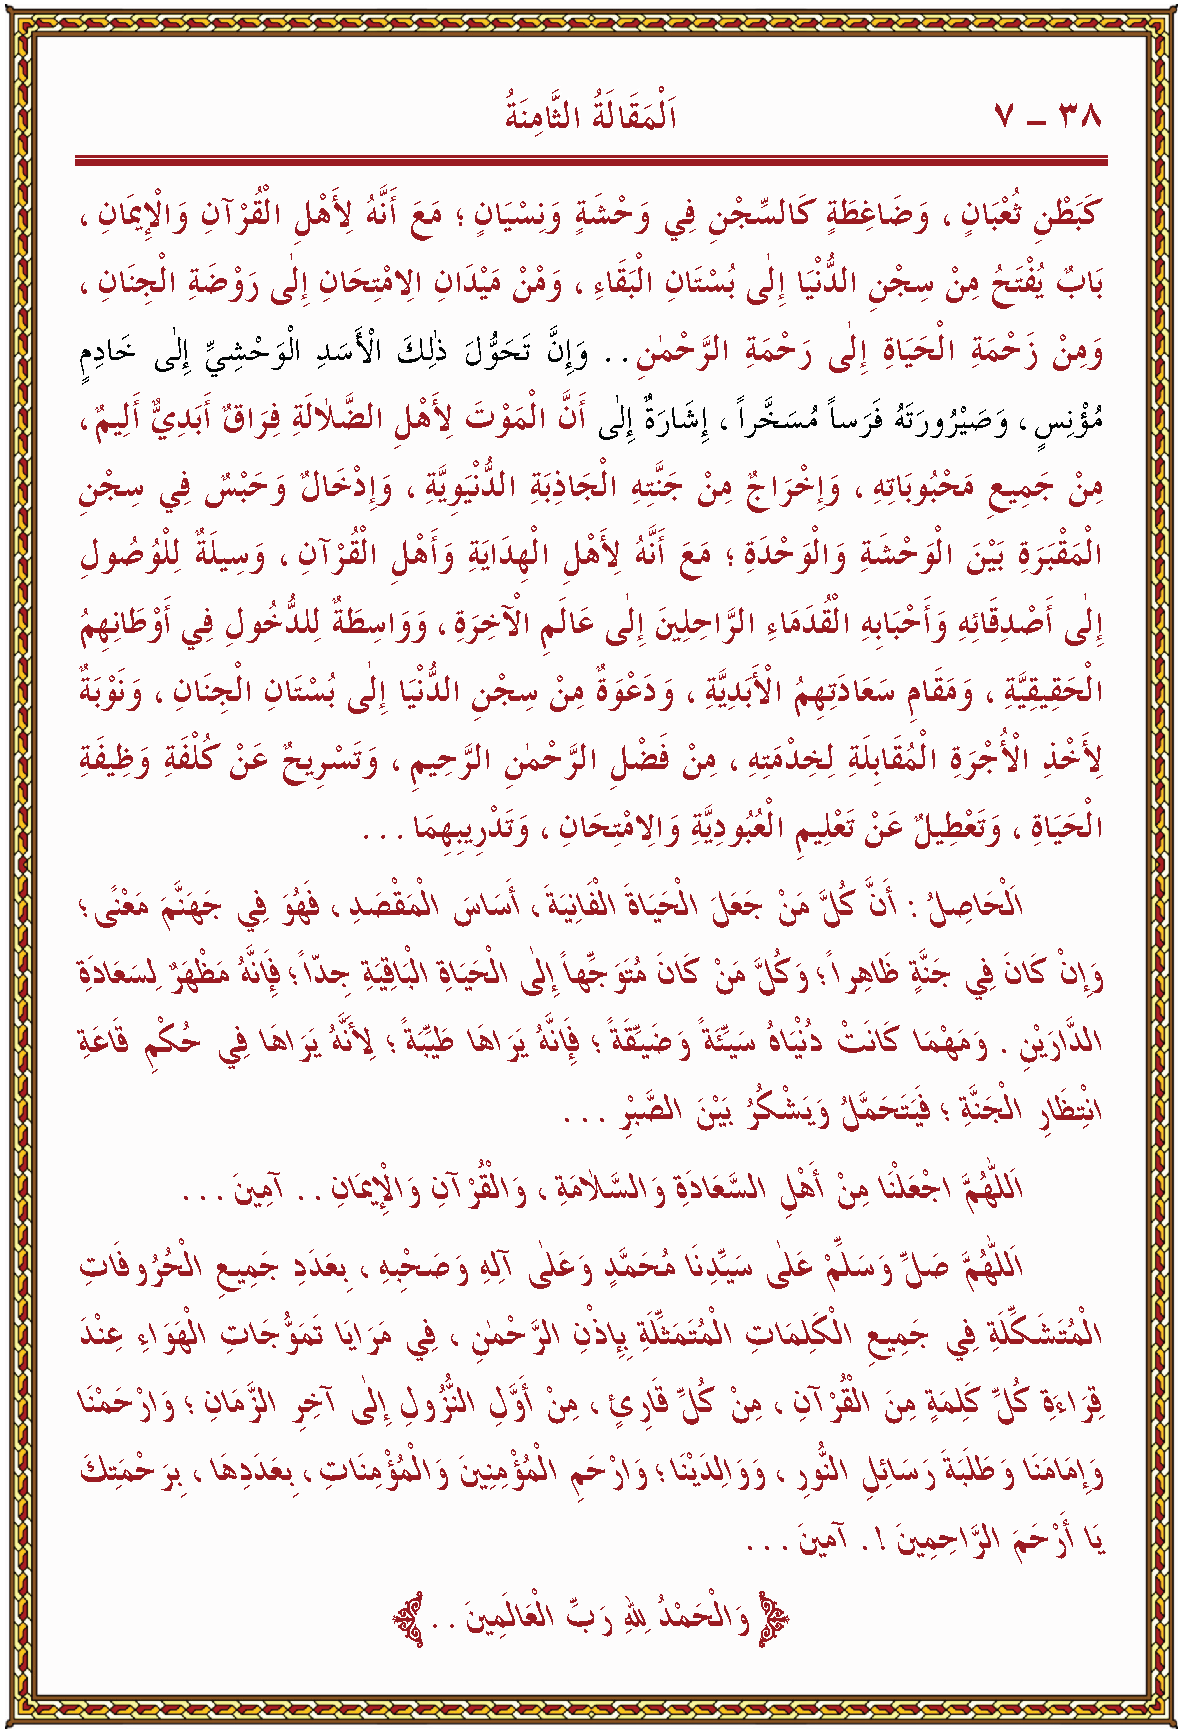 ٣٨ – ٧ اَلْمَقَالَةُ الثَّامِنَةُ
كَبَطْنِ ثُعْبَانٍ ، وَضَاغِطَةٍ كَالسِّجْنِ فِي وَحْشَةٍ وَنِسْيَانٍ ؛ مَعَ أَنَّهُ لِأَهْلِ الْقُرْآنِ وَالْإِيمَانِ ،
بَابٌ يُفْتَحُ مِنْ سِجْنِ الدُّنْيَا إِلٰى بُسْتَانِ الْبَقَاءِ ، وَمْنْ مَيْدَانِ الِامْتِحَانِ إِلٰى رَوْضَةِ الْجِنَانِ ،
وَمِنْ زَحْمَةِ الْحَيَاةِ إِلٰى رَحْمَةِ الرَّحْمٰنِ . . وَإِنَّ تَحَوُّلَ ذٰلِكَ الْأَسَدِ الْوَحْشِيِّ إِلٰى خَادِمٍ
مُؤْنِسٍ ، وَصَيْرُورَتَهُ فَرَساً مُسَخَّراً ، إِشَارَةٌ إِلٰى أَنَّ الْمَوْتَ لِأَهْلِ الضَّلَالَةِ فِرَاقٌ أَبَدِيٌّ أَلِيمٌ ،
مِنْ جَمِيعِ مَحْبُوبَاتِهِ ، وَإِخْرَاجٌ مِنْ جَنَّتِهِ الْجَاذِبَةِ الدُّنْيَوِيَّةِ ، وَإِدْخَالٌ وَحَبْسٌ فِي سِجْنِ
الْمَقْبَرَةِ بَيْنَ الْوَحْشَةِ وَالْوَحْدَةِ ؛ مَعَ أَنَّهُ لِأَهْلِ الْهِدَايَةِ وَأَهْلِ الْقُرْآنِ ، وَسِيلَةٌ لِلْوُصُولِ
إِلٰى أَصْدِقَائِهِ وَأَحْبَابِهِ الْقُدَمَاءِ الرَّاحِلِينَ إِلٰى عَالَمِ الْآخِرَةِ ، وَوَاسِطَةٌ لِلدُّخُولِ فِي أَوْطَانِهِمُ
الْحَقِيقِيَّةِ ، وَمَقَامِ سَعَادَتِهِمُ الْأَبَدِيَّةِ ، وَدَعْوَةٌ مِنْ سِجْنِ الدُّنْيَا إِلٰى بُسْتَانِ الْجِنَانِ ، وَنَوْبَةٌ
لِأَخْذِ الْأُجْرَةِ الْمُقَابِلَةِ لِخِدْمَتِهِ ، مِنْ فَضْلِ الرَّحْمٰنِ الرَّحِيمِ ، وَتَسْرِيحٌ عَنْ كُلْفَةِ وَظِيفَةِ
الْحَيَاةِ ، وَتَعْطِيلٌ عَنْ تَعْلِيمِ الْعُبُودِيَّةِ وَالِامْتِحَانِ ، وَتَدْرِيبِهِمَا . . .
اَلْحَاصِلُ : أَنَّ كُلَّ مَنْ جَعَلَ الْحَيَاةَ الْفَانِيَةَ ، أَسَاسَ الْمَقْصَدِ ، فَهُوَ فِي جَهَنَّمَ مَعْنًى ؛
وَإِنْ كَانَ فِي جَنَّةٍ ظَاهِراً ؛ وَكُلَّ مَنْ كَانَ مُتَوَجِّهاً إِلٰى الْحَيَاةِ الْبَاقِيَةِ جِدّاً ؛ فَإِنَّهُ مَظْهَرٌ لِسَعَادَةِ
الدَّارَيْنِ . وَمَهْمَا كَانَتْ دُنْيَاهُ سَيِّئَةً وَضَيِّقَةً ؛ فَإِنَّهُ يَرَاهَا طَيِّبَةً ؛ لِأَنَّهُ يَرَاهَا فِي حُكْمِ قَاعَةِ
انْتِظَارِ الْجَنَّةِ ؛ فَيَتَحَمَّلُ وَيَشْكُرُ بَيْنَ الصَّبْرِ . . .
اَللّٰهُمَّ اجْعَلْنَا مِنْ أَهْلِ السَّعَادَةِ وَالسَّلَامَةِ ، وَالْقُرْآنِ وَالْإِيمَانِ . . آمِينَ . . .
اَللّٰهُمَّ صَلِّ وَسَلِّمْ عَلٰى سَيِّدِنَا مُحَمَّدٍ وَعَلٰى آلِهِ وَصَحْبِهِ ، بِعَدَدِ جَمِيعِ الْحُرُوفَاتِ
الْمُتَشَكِّلَةِ فِي جَمِيعِ الْكَلِمَاتِ الْمُتَمَثِّلَةِ بِإِذْنِ الرَّحْمٰنِ ، فِي مَرَايَا تَمَوُّجَاتِ الْهَوَاءِ عِنْدَ
قِرَاءَةِ كُلِّ كَلِمَةٍ مِنَ الْقُرْآنِ ، مِنْ كُلِّ قَارِئٍ ، مِنْ أَوَّلِ النُّزُولِ إِلٰى آخِرِ الزَّمَانِ ؛ وَارْحَمْنَا
وَإِمَامَنَا وَطَلَبَةَ رَسَائِلِ النُّورِ ، وَوَالِدَيْنَا ؛ وَارْحَمِ الْمُؤْمِنِينَ وَالْمُؤْمِنَاتِ ، بِعَدَدِهَا ، بِرَحْمَتِكَ
يَا أَرْحَمَ الرَّاحِمِينَ ! . آمينَ . . .
وَالْحَمْدُ لِلّٰهِ رَبِّ الْعَالَمِينَ . .